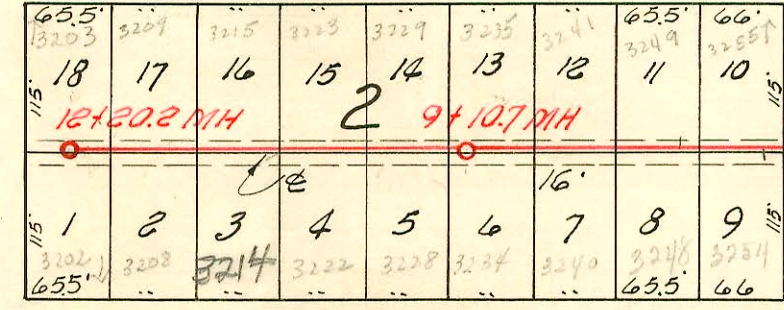 65.5' 65.5' 66'
3203 3209 3215 3223 3229 3235 3241 3249 3255
18 17 16 15 14 13 12 11 10
115' 115'
2
12+20.2 MH 9+10.7 MH
℄ 16'
115' 115'
1 2 3 4 5 6 7 8 9
3202 3208 3214 3222 3228 3234 3240 3248 3254
65.5' 65.5' 66